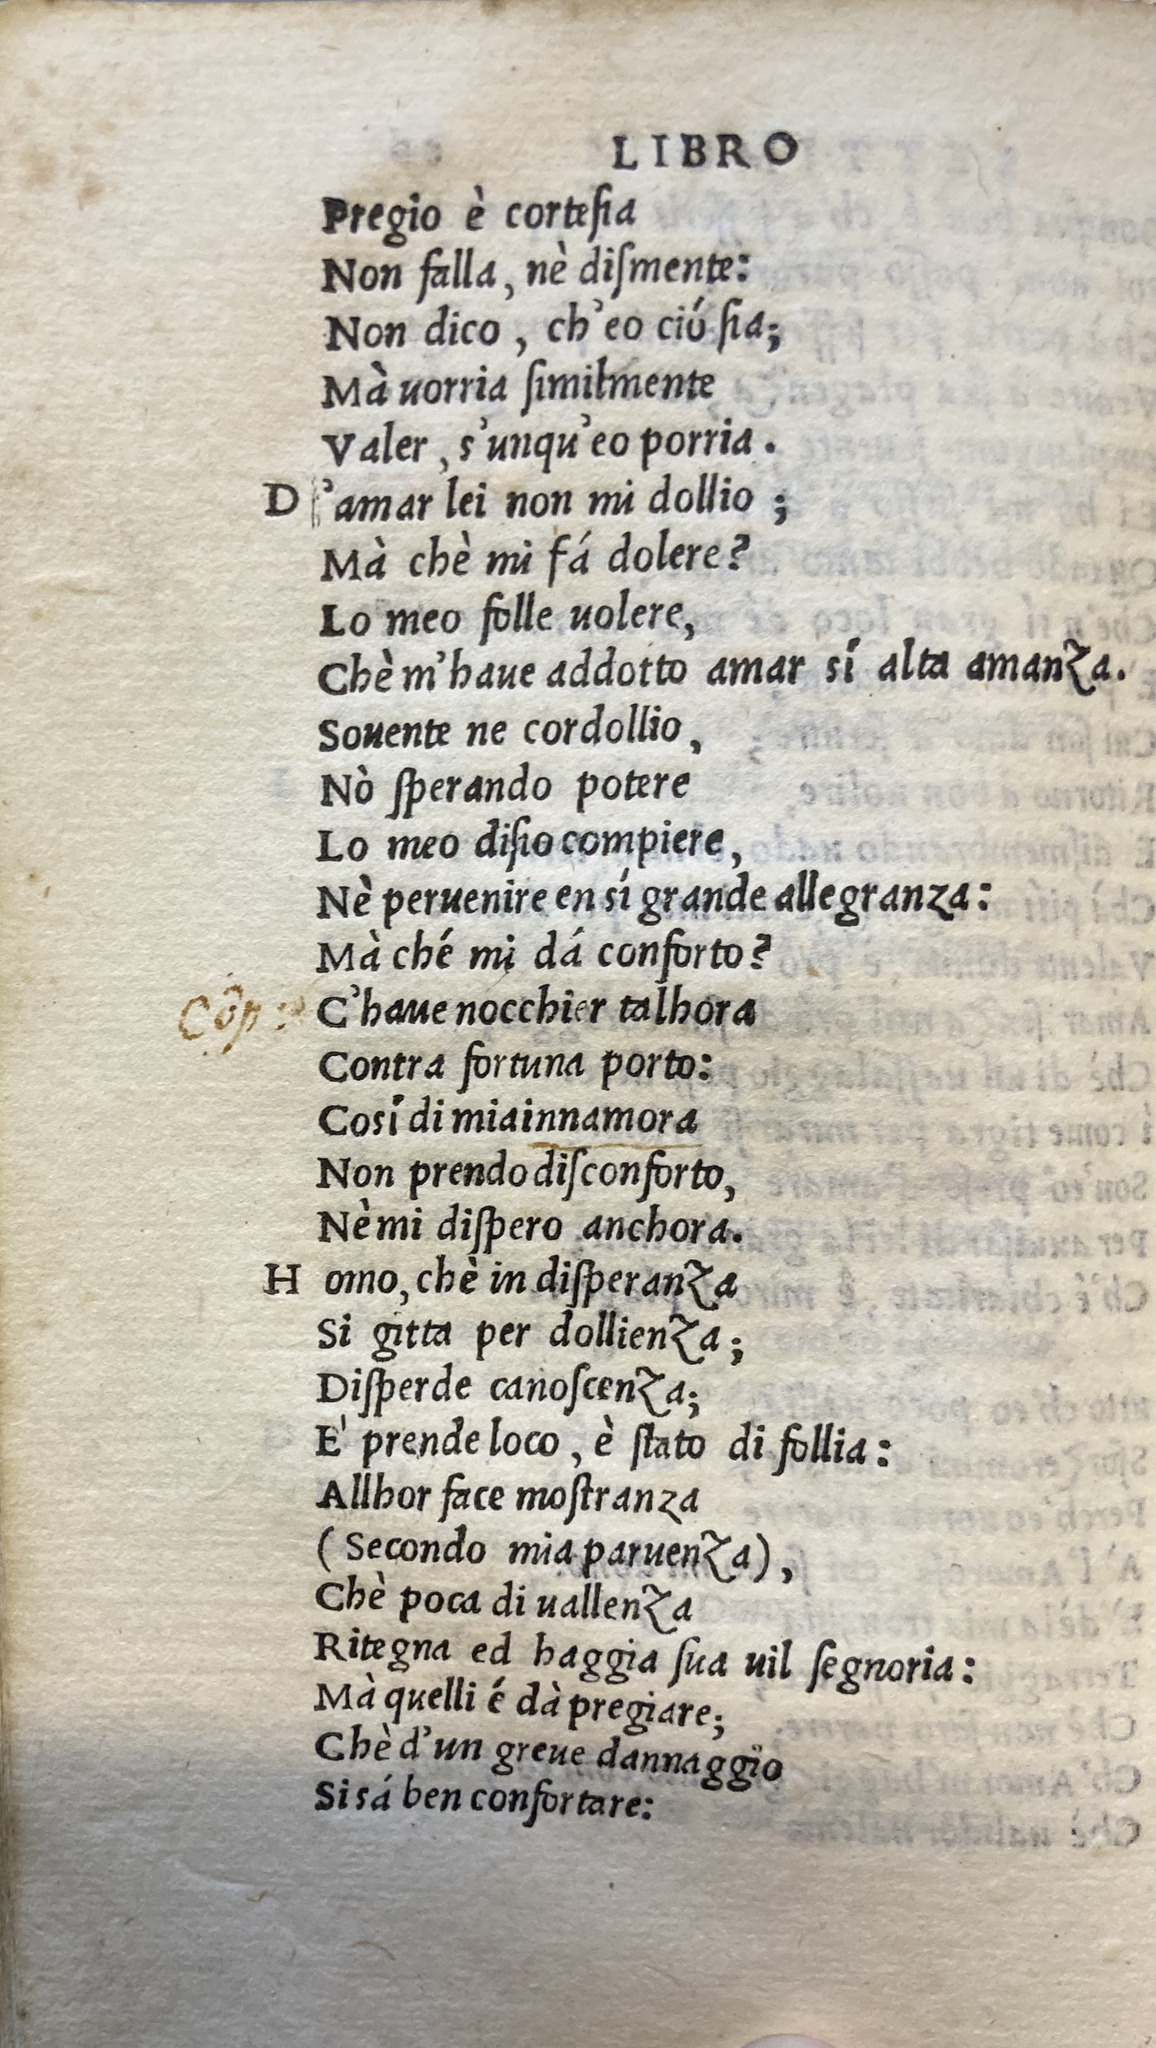 LIBRO
Pregio è cortesia
Non falla, nè dismente:
Non dico, ch'eo ciú sia;
Mà uorria similmente
Valer, s'unqu'eo porria.
D'amar lei non mi dollio;
Mà chè mi fá dolere?
Lo meo folle uolere,
Chè m'haue addotto amar sí alta amanza.
Souente ne cordollio,
Nò sperando potere
Lo meo disio compiere,
Nè peruenire en sí grande allegranza:
Mà ché mi dá conforto?
Cōp: C'haue nocchier talhora
Contra fortuna porto:
Cosí di mia innamora
Non prendo disconforto,
Nè mi dispero anchora.
Homo, chè in disperanza
Si gitta per dollienza;
Disperde canoscenza;
E' prende loco, è stato di follia:
Allhor face mostranza
(Secondo mia paruenza),
Chè poca di uallenza
Ritegna ed haggia sua uil segnoria:
Mà quelli é dà pregiare;
Chè d'un greue dannaggio
Si sá ben confortare: